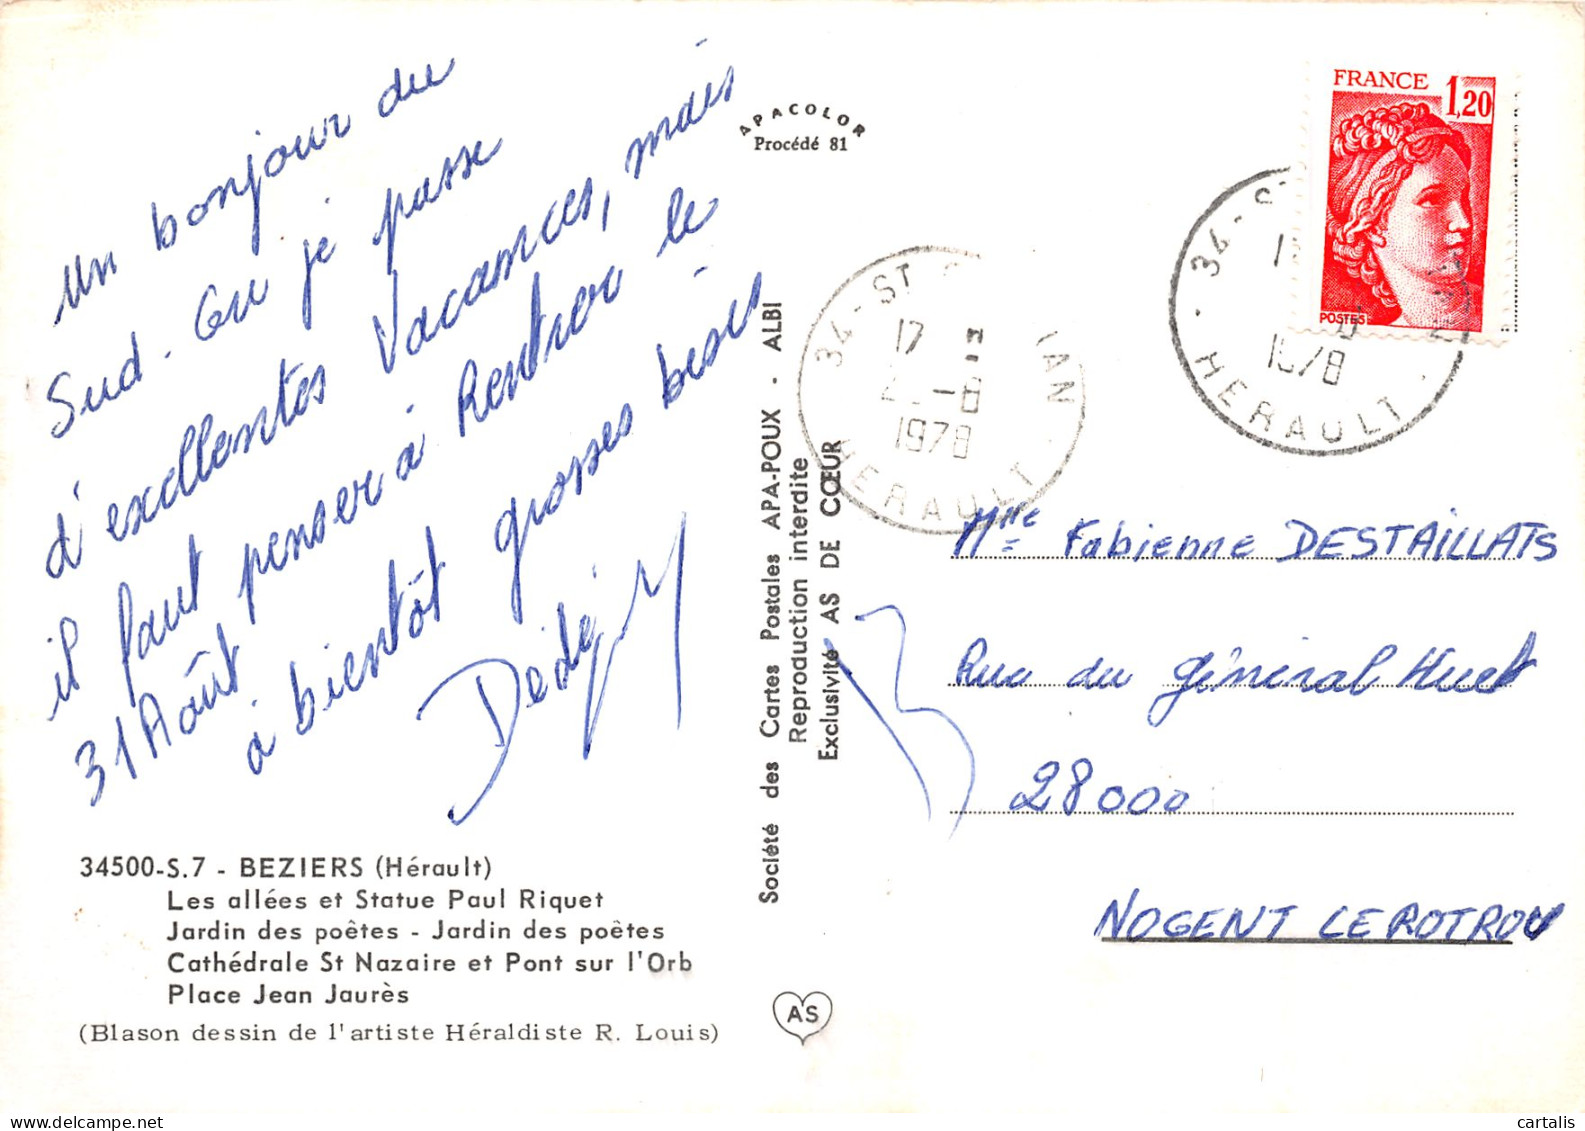 un bonjour du
Sud - Ou je passe
d'excellentes Vacances, mais
il faut penser à Rentrer le
31 Août
à bientôt grosses bises
Dédé
34500-S.7 - BEZIERS (Hérault)
Les allées et Statue Paul Riquet
Jardin des poêtes - Jardin des poêtes
Cathédrale St Nazaire et Pont sur l'Orb
Place Jean Jaurès
(Blason dessin de l'artiste Héraldiste R. Louis)
APACOLOR
Procédé 81
Société des Cartes Postales APA-POUX - ALBI
Reproduction interdite
Exclusivité AS DE CŒUR
AS
34-ST
17
-8
1978
HERAULT
34-S
HERAULT
FRANCE 1,20
POSTES
Mlle Fabienne DESTAILLATS
Rue du général Huet
28000
NOGENT LE ROTROU
cartalis.com